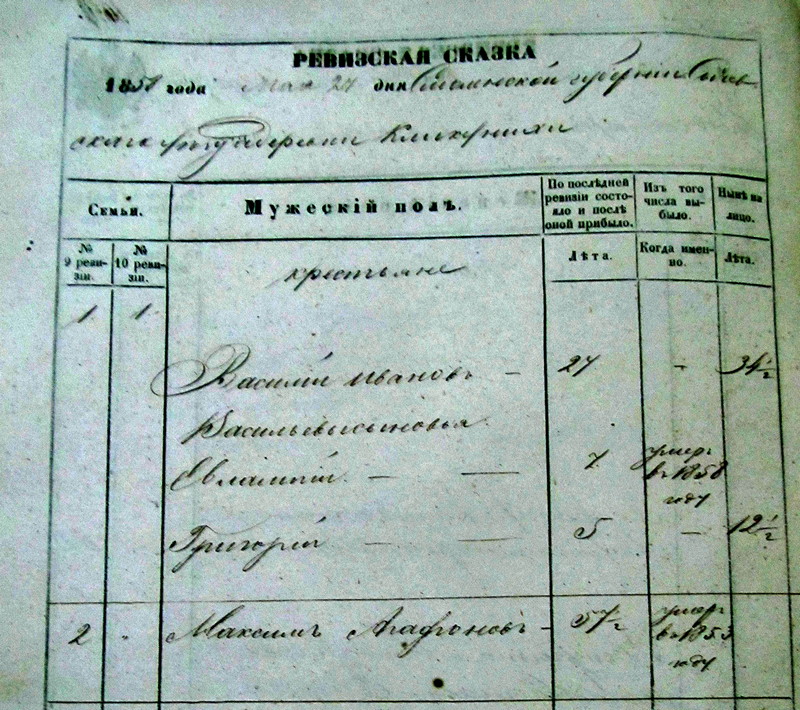 РЕВИЗСКАЯ СКАЗКА
185 года Мая 27 дня губернии
скаго деревни
Семьи. Мужескій полъ. По послѣдней ревизіи состояло и послѣ оной прибыло. Изъ того числа выбыло. Нынѣ на лицо.
№ 9 ревизіи. № 10 ревизіи. крестьяне Лѣта. Когда именно. Лѣта.
1 1
Василій Ивановъ – 27 – 34 1/2
Васильевы сыновья
Евлампій – — 7 умеръ въ 1858 году
Григорій – — 5 – 12 1/2
2 " Максимъ Агафоновъ – 57 1/2 умеръ въ 1853 году